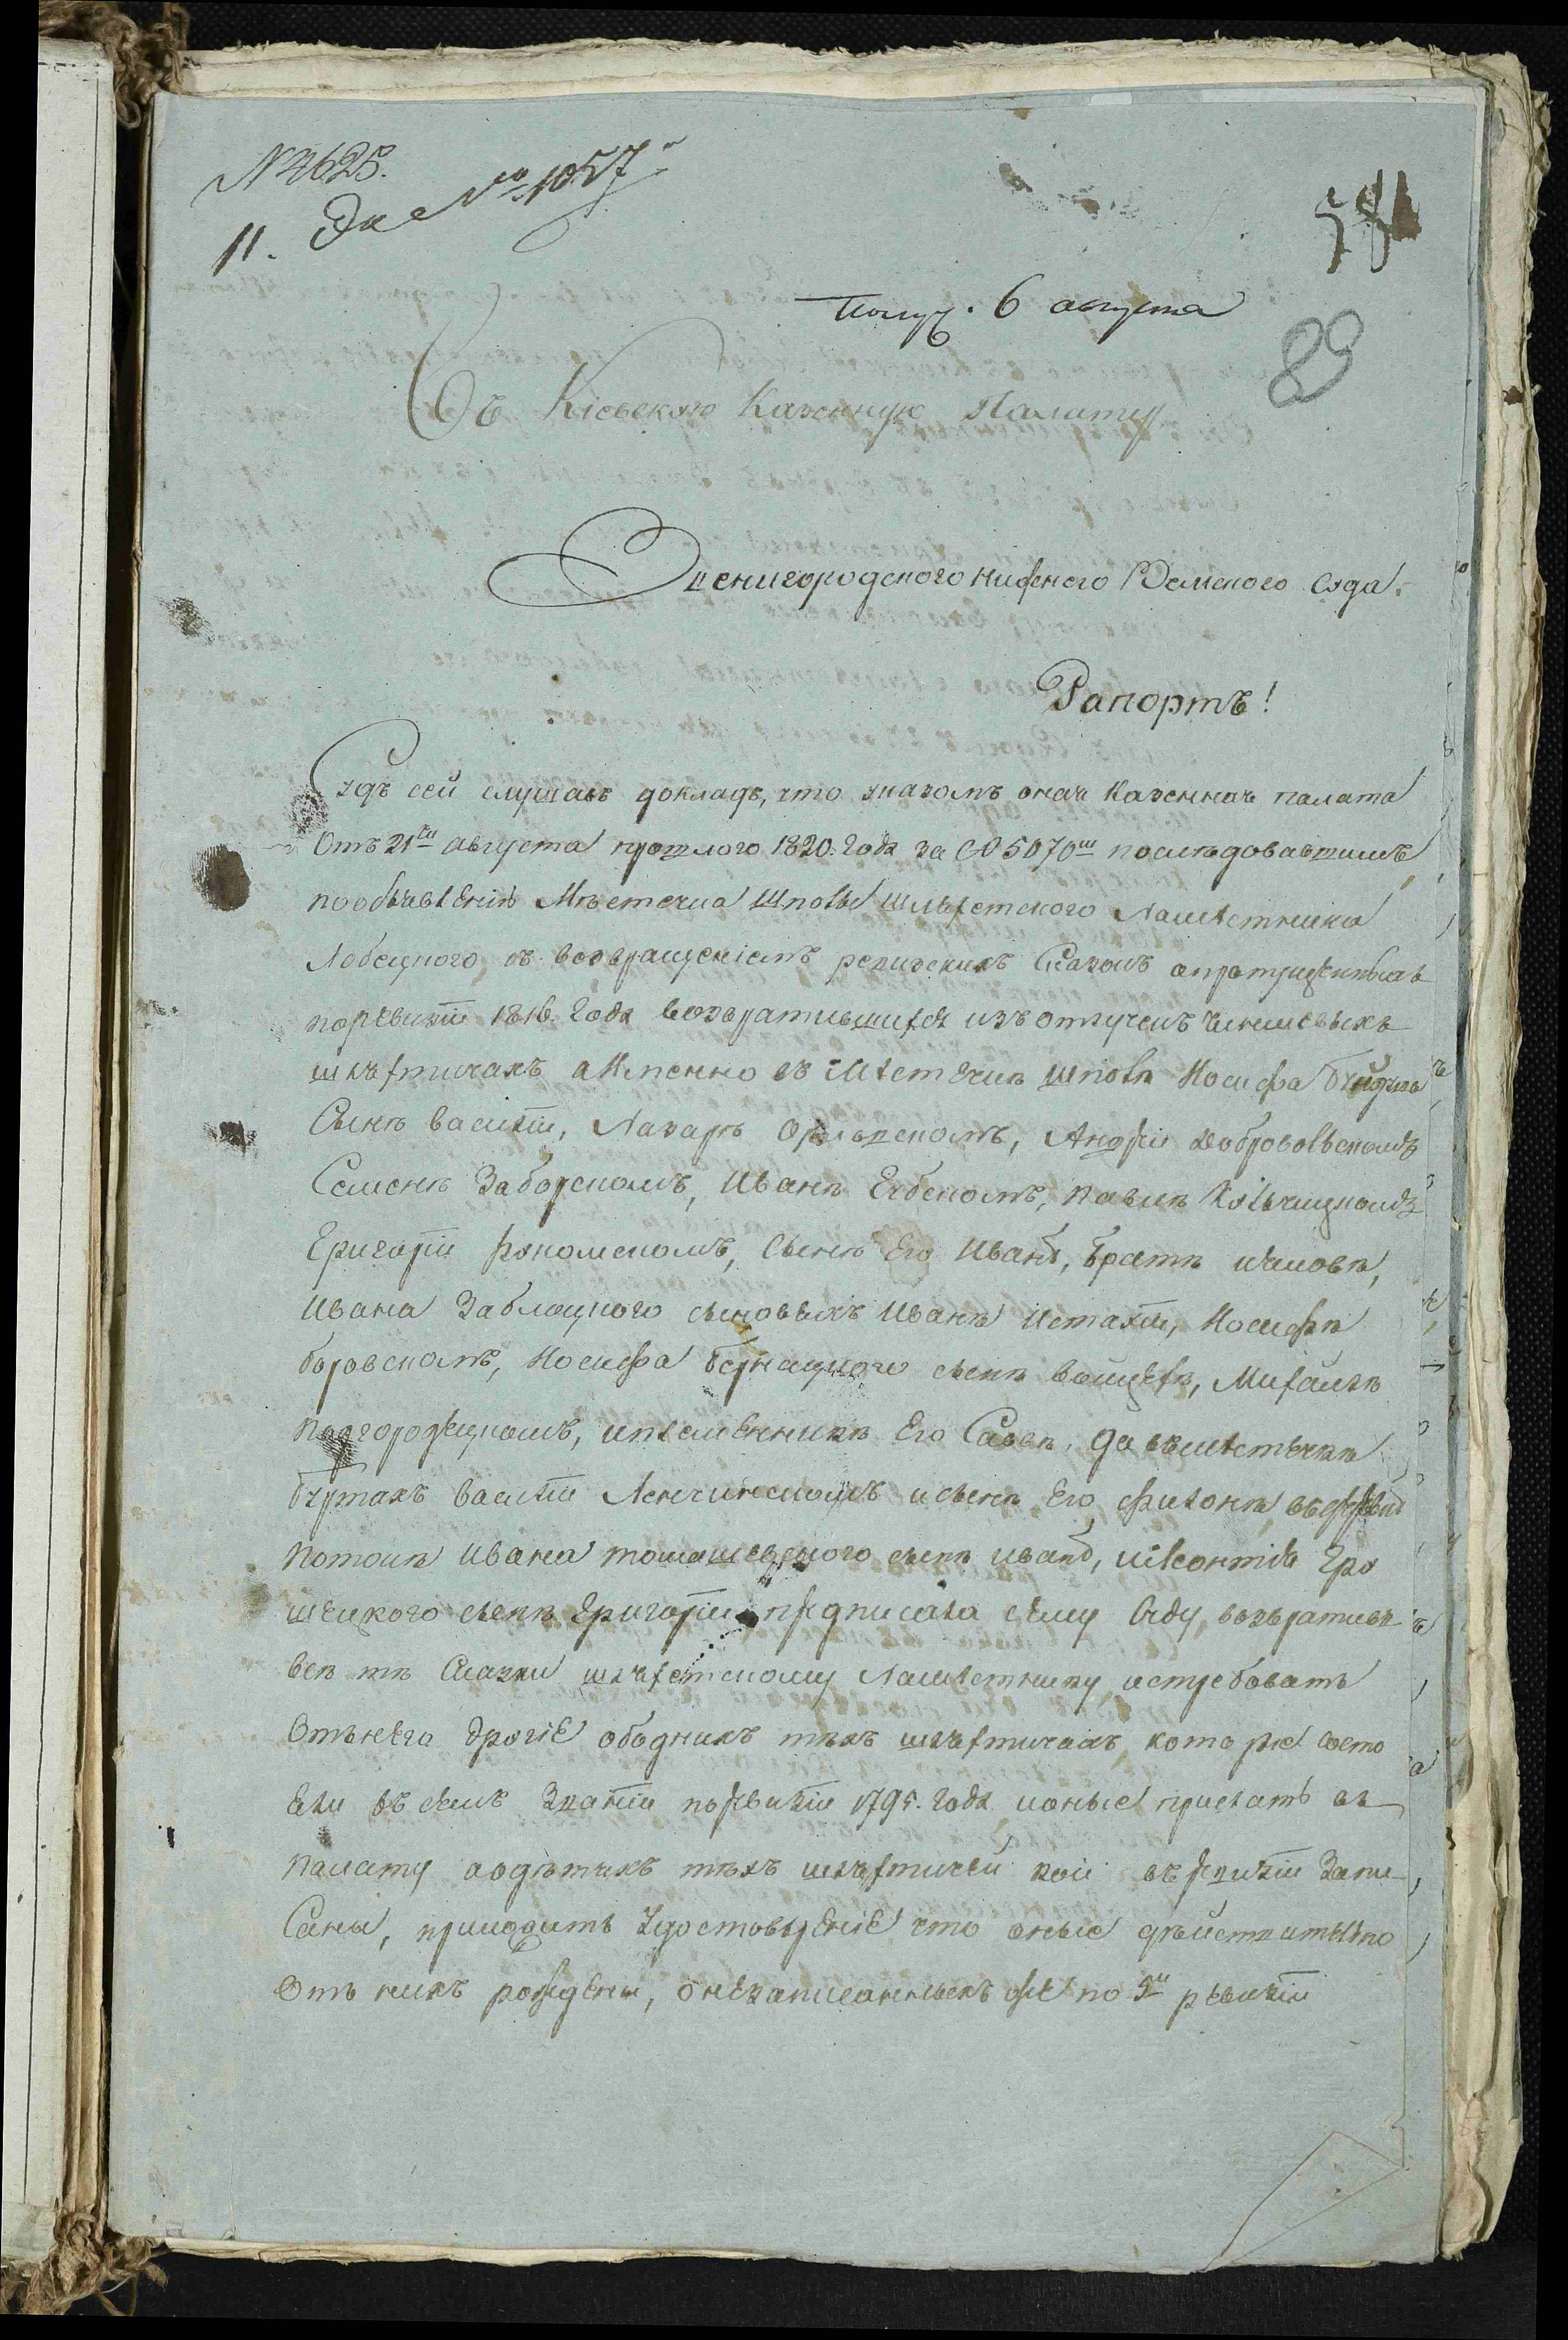 № 4625.
11. Да № 1057
Получ. 6 августа
89
Въ Кіевскую Казенную Палату
Звенигородского нижнего Земского Суда
Рапортъ!
Судъ сей слушавъ докладъ, что указомъ оная Казенная палата
Отъ 21го августа прошлого 1820. Года за № 5070м последовавшимъ
пообъявленію Мѣстечка Шполы Шляхетского Намѣстника
Лобецкого съ возвращеніемъ ревизскихъ Сказокъ опропущенныхъ
поревизіи 1816. Года возвратившихся изъ отлучекъ чиншевыхъ
шляхтичахъ аИменно въ Мѣстечкѣ Шполѣ Иосифа
Сынѣ василіи, Лазарѣ Орловскомъ, Андрѣи Добровольскомъ
Семенѣ Заборскомъ, Иванѣ Павлѣ
Григоріи Сынѣ Его Иванѣ, братѣ Яковѣ,
Ивана Заблоцкого сыновьяхъ Иванѣ Истахіи, Иосифѣ
боровскомъ, Иосифа бернацкого сынѣ войцехѣ, Михайлѣ
подгородецкомъ, иплемянникѣ Его Савѣ, да вмѣстечкѣ
василіи Ленчинскомъ исынѣ Его филонѣ
Ивана томашевского сынѣ иванѣ, Гро
шецкого сынѣ Григоріи предписала сему Суду, возвративъ
всѣ тѣ Сказки шляхетскому Намѣстнику истребовать
Отънего другіе ободнихъ тѣхъ шляхтичахъ которые состо
яли въ семъ Званіи поревизіи 1795. Года ионые прислать въ
палату аодѣтяхъ тѣхъ шляхтичей кои въревизіи Запи-
саны, приложить Удостоверѣніе что оные дѣйствительно
Отъ нихъ рождены, онезаписанныхъ же по 5й ревизіи